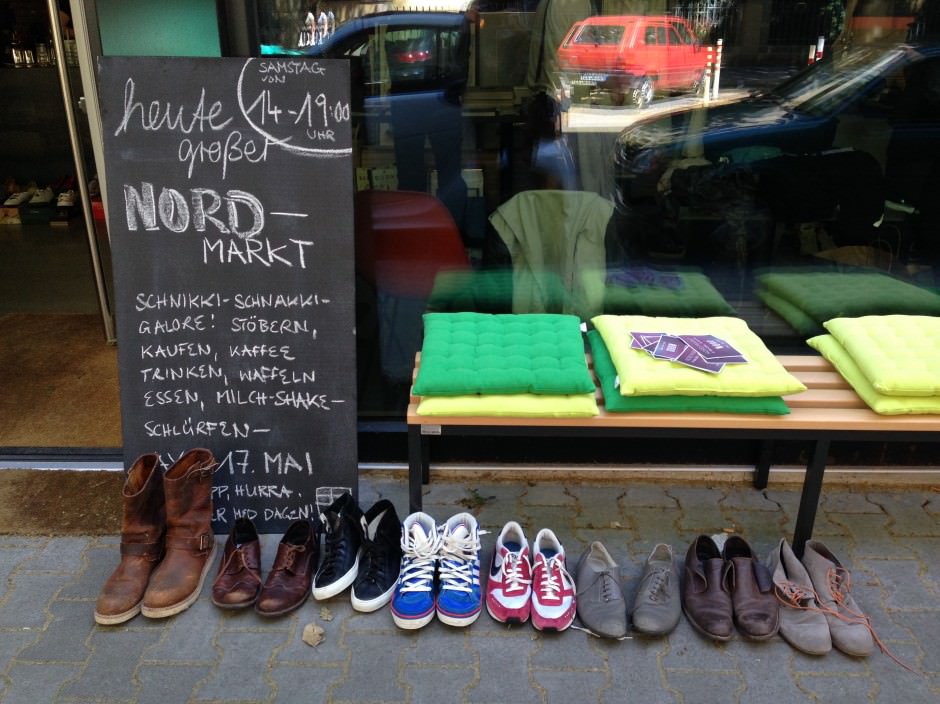 SAMSTAG
VON
14-19:00
UHR
heute
großer
NORD-
MARKT
SCHNIKKI-SCHNAKKI-
GALORE! STÖBERN,
KAUFEN, KAFFEE
TRINKEN, WAFFELN
ESSEN, MILCH-SHAKE-
SCHLÜRFEN-
17. MAI
HURRA.
HED DAGEN!